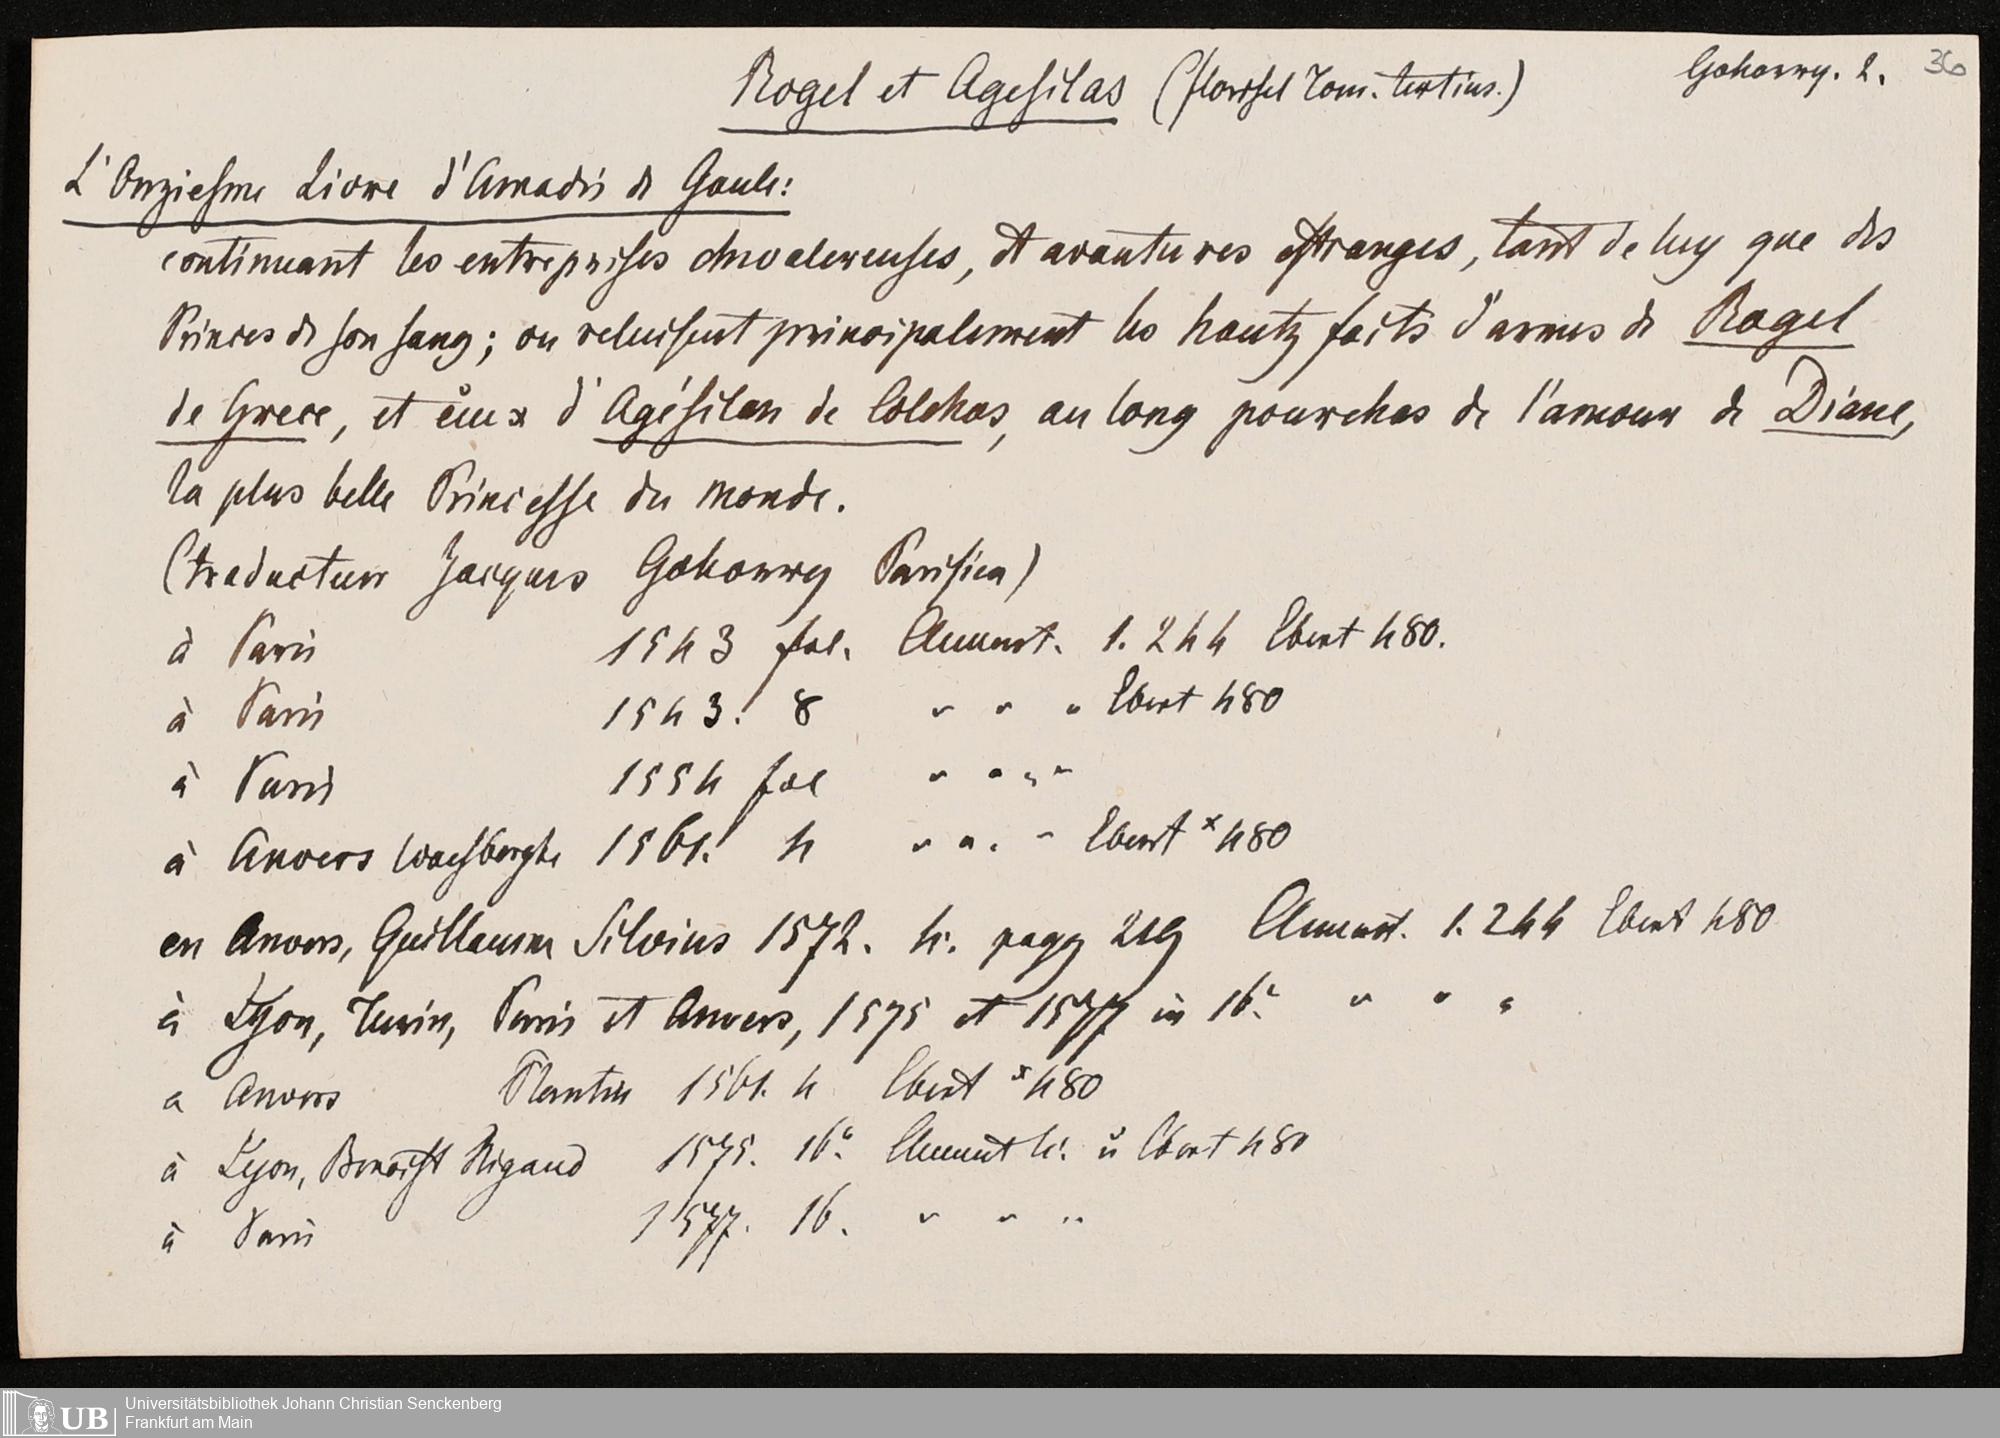 Rogel et Agesilas (florisel Tom. tertius.)
Gohorry. 2.
36
L'Onziesme Livre d'Amadis de Gaule:
continuant les entreprises chevalereuses, et avantures estranges, tant de luy que des
Princes de son sang; ou reluisent principalement les hautz faits d'armes de Rogel
de Grece, et ceux d'Agésilan de Colchos, au long pourchas de l'amour de Diane,
la plus belle Princesse du monde.
(traducteur Jacques Gohorry Parisien)
à Paris 1543 fol. 1.244 Ebert 480.
à Paris 1543. 8 " " " Ebert 480
à Paris 1554 fol " " " "
à Anvers Waesberghe 1561. 4 " " " " Ebert * 480
en Anvers, Guillaume Silvius 1572. 4. pagg 219 1.244 Ebert 480
à Lyon, Turin, Paris et Anvers, 1575 et 1577 in 16. " " "
a Anvers Plantin 1561. 4 Ebert * 480
à Lyon, Benoist Rigaud 1575. 16. Ebert 480
à Paris 1577. 16. " " "
Universitätsbibliothek Johann Christian Senckenberg
Frankfurt am Main
UB